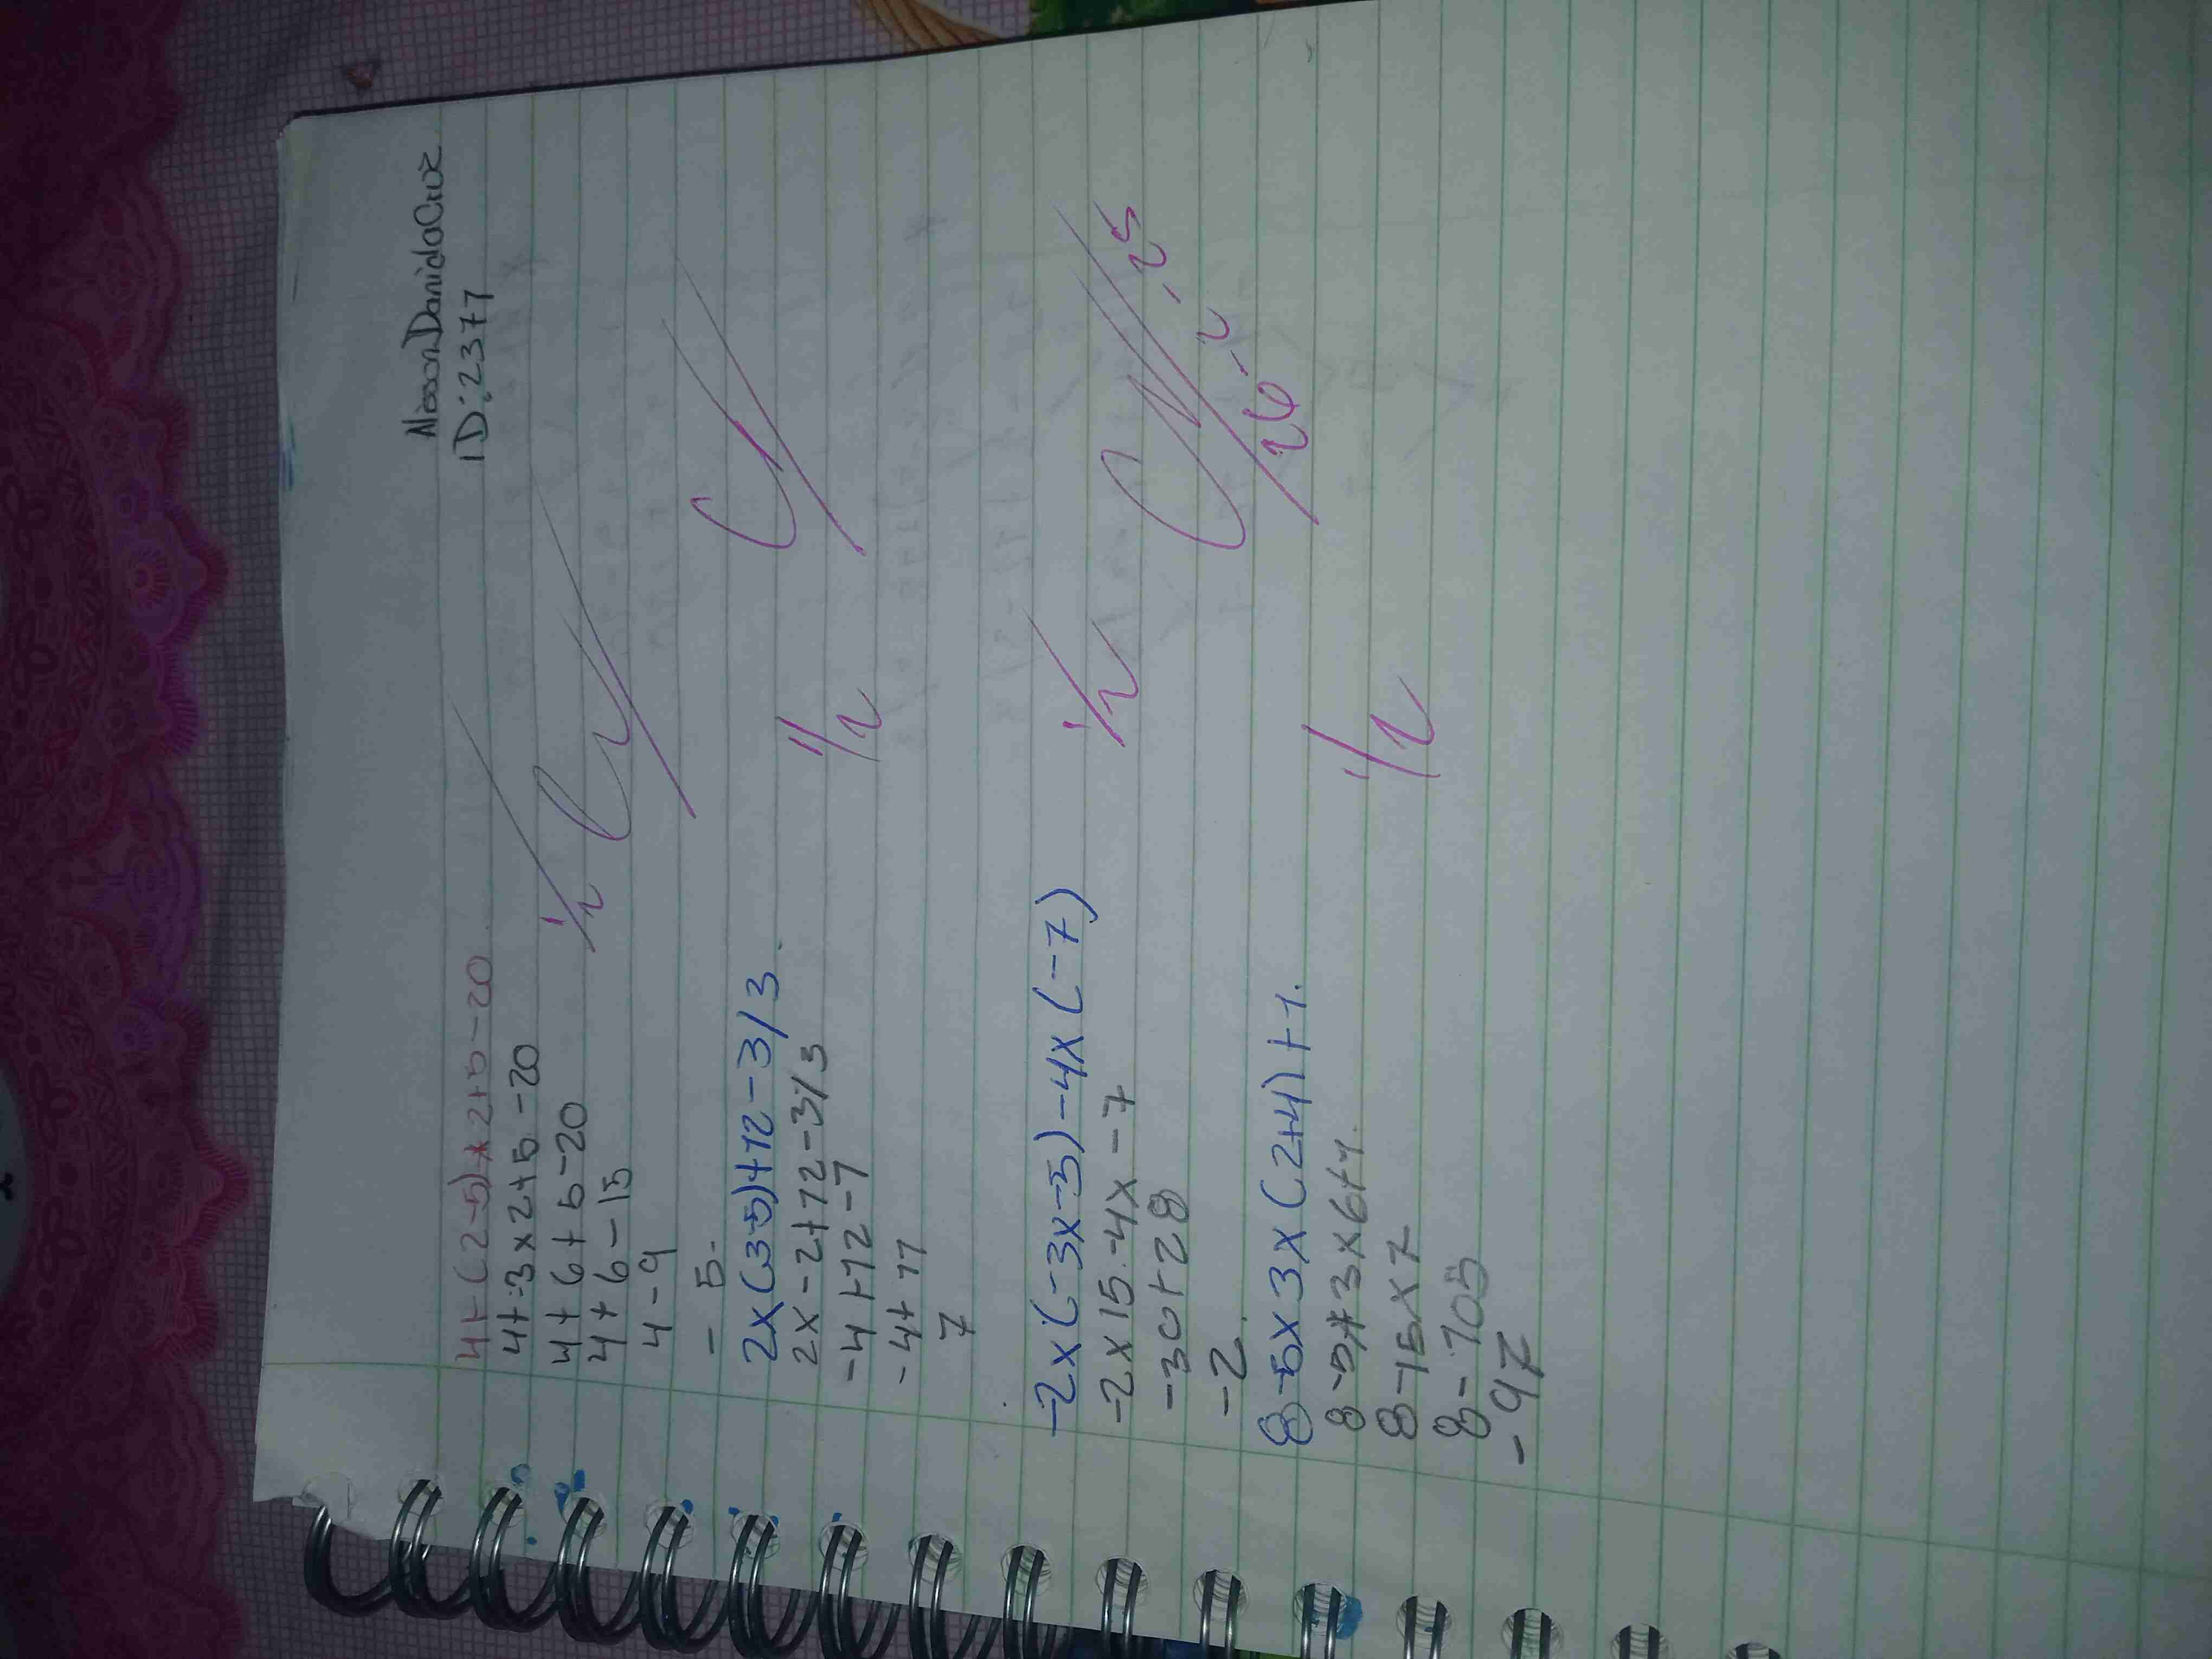 Alisson Daniela Cruz
ID: 2377
4+(2-5)x2+5-20.
4+-3x2+5-20
4+6+5-20
4+6-15
4-9
-5-
1/2
2x(3-5)+12-3/3.
2x-2+12-3/3
-4+12-1
-4+11
7
1/2
-2x(-3x-5)-4x(-7)
-2x15-4x-7
-30+28
-2.
1/2
26-2-25
8-5x3x(2+4)+1.
8-5x3x6+1.
8-15x7
8-105
-97
1/2